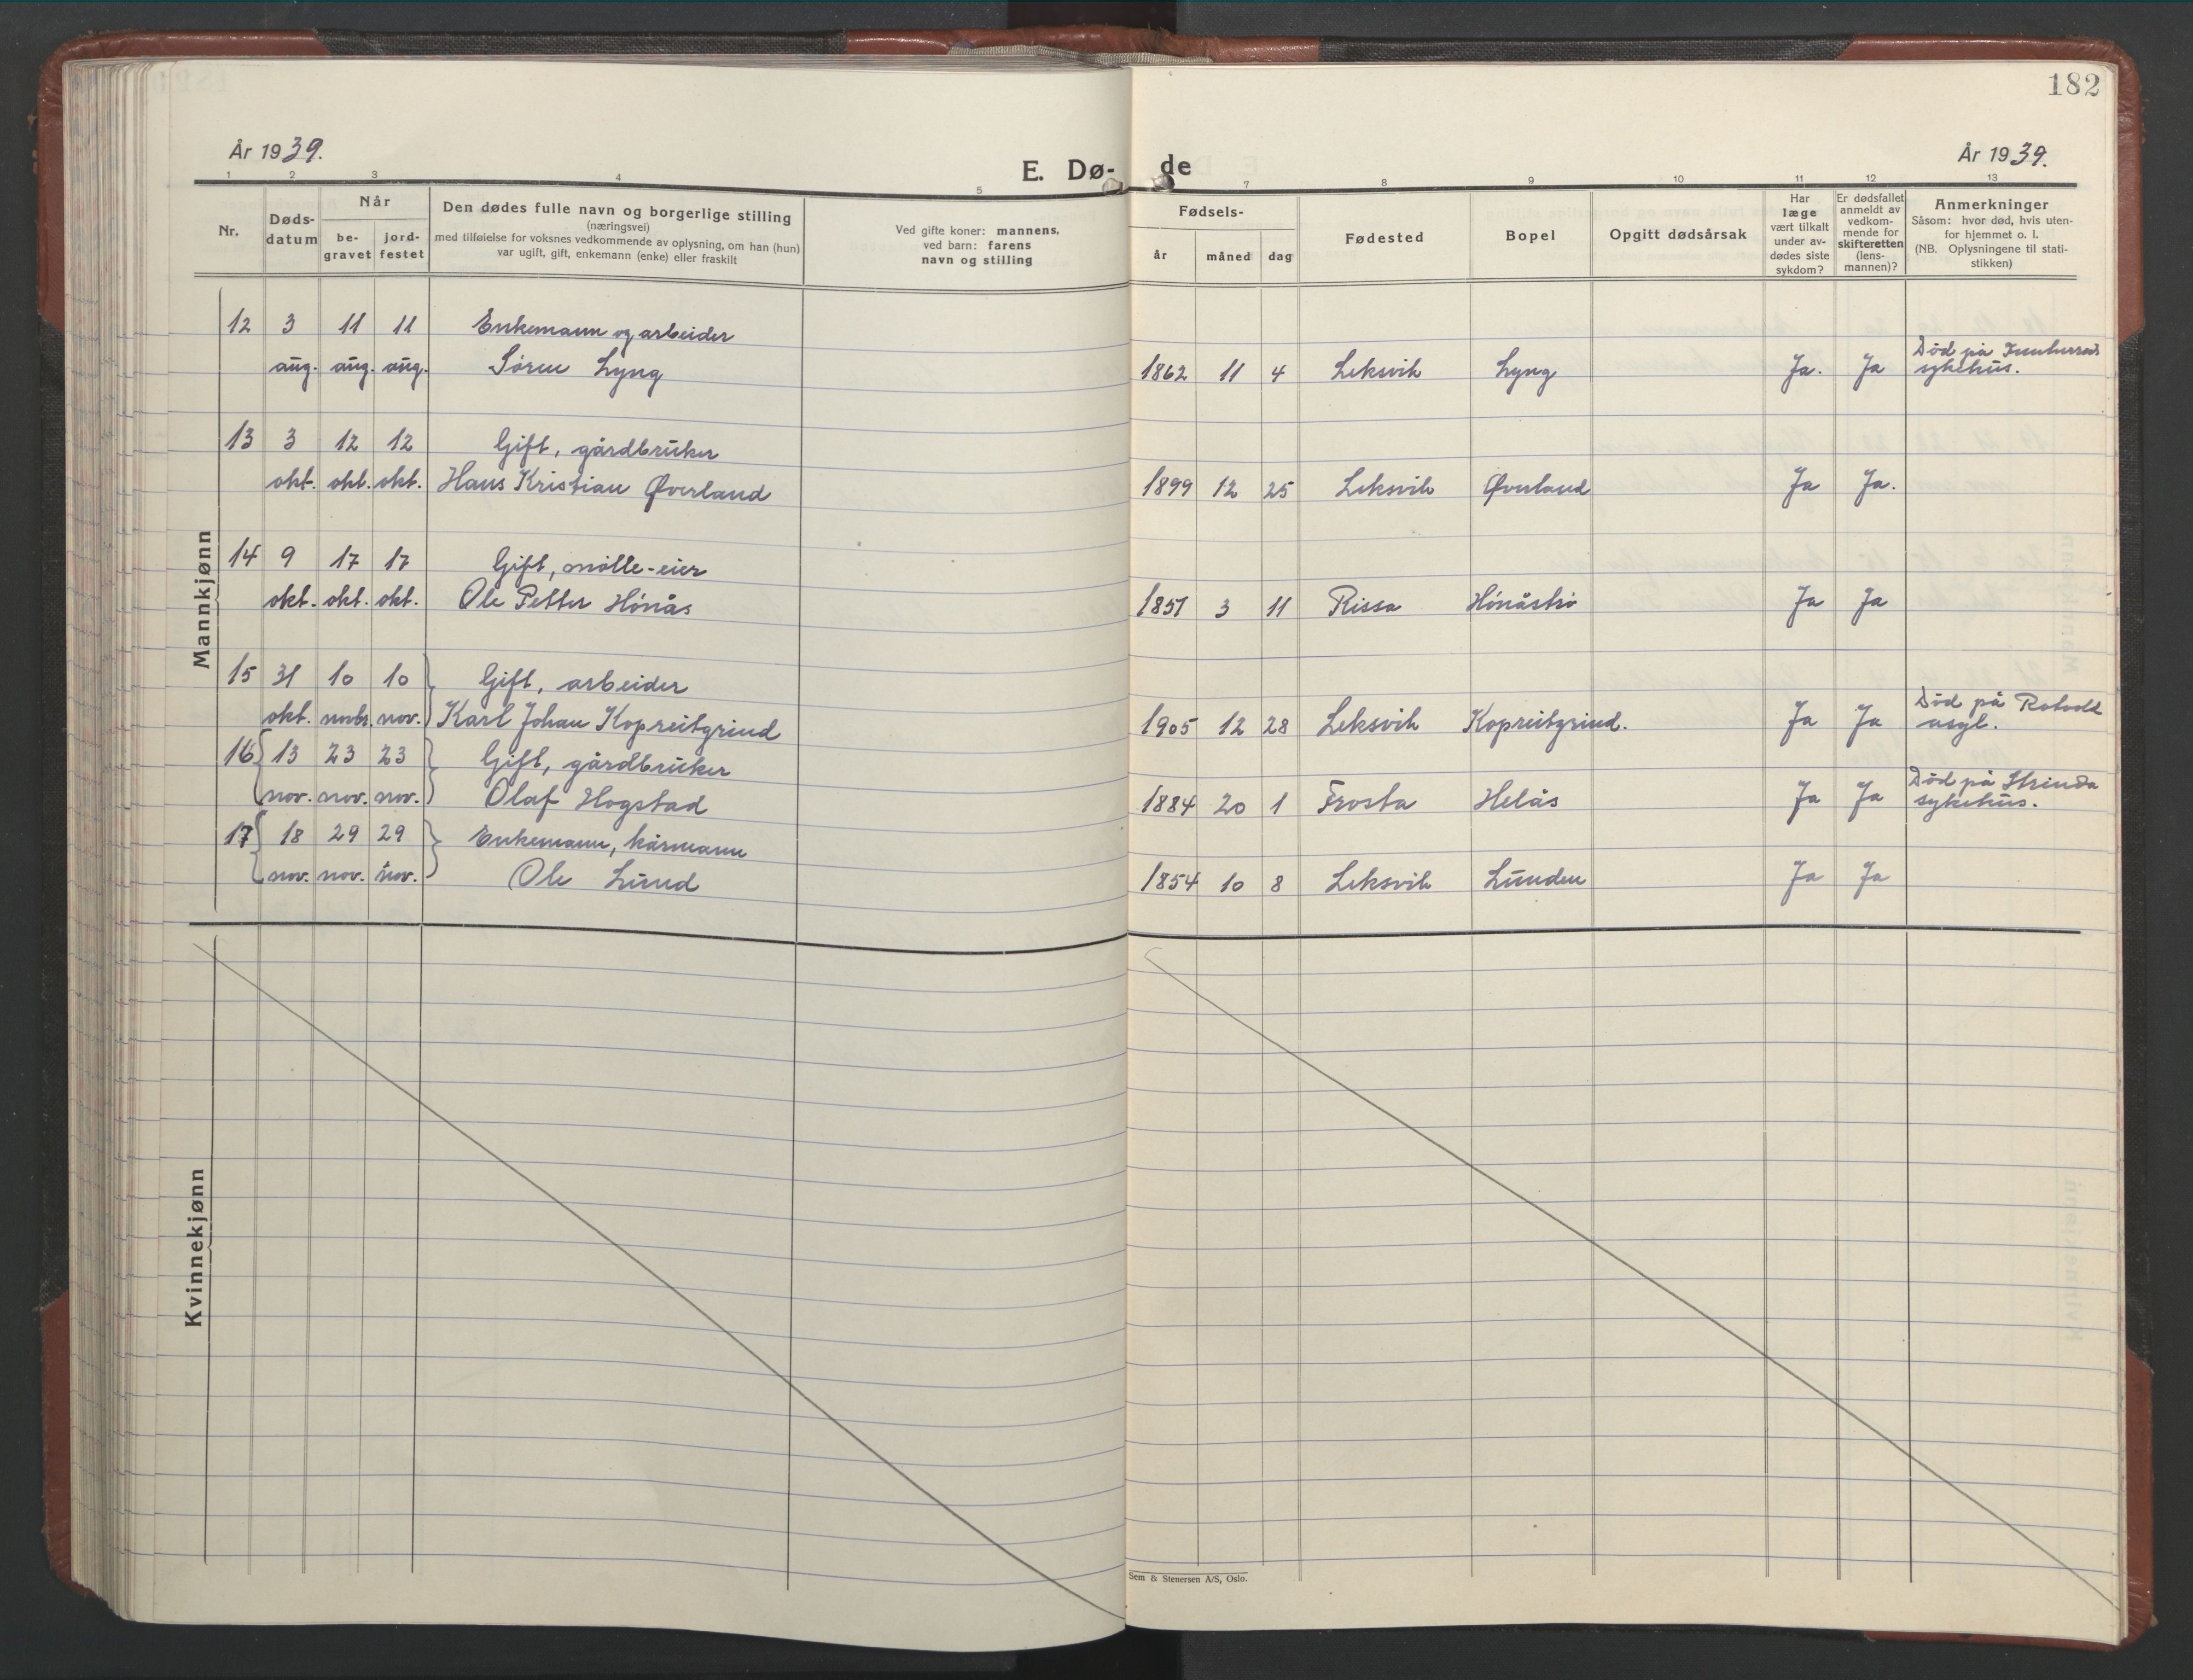 182
År 1939.
E. Dø-de
År 1939.
1 2 3 4 5 7 8 9 10 11 12 13
Nr.
Døds-
datum
Når
be-
gravet
jord-
festet
Den dødes fulle navn og borgerlige stilling
(næringsvei)
med tilføielse for voksnes vedkommende av oplysning, om han (hun)
var ugift, gift, enkemann (enke) eller fraskilt
Ved gifte koner: mannens,
ved barn: farens
navn og stilling
Fødsels-
år måned dag
Fødested
Bopel
Opgitt dødsårsak
Har
læge
vært tilkalt
under av-
dødes siste
sykdom?
Er dødsfallet
anmeldt av
vedkom-
mende for
skifteretten
(lens-
mannen)?
Anmerkninger
Såsom: hvor død, hvis uten-
for hjemmet o. l.
(NB. Oplysningene til stati-
stikken)
Mannkjønn
12 3 11 11 Enkemann og arbeider
aug. aug. aug. Søren Lyng 1862 11 4 Leksvik Lyng Ja. Ja Død på Innherred
sykehus.
13 3 12 12 Gift, gårdbruker
okt. okt. okt. Hans Kristian Øverland 1899 12 25 Leksvik Øverland Ja Ja.
14 9 17 17 Gift, mølle-eier
okt. okt. okt. Ole Petter Hønås 1851 3 11 Rissa Hønåstrø Ja Ja
15 31 10 10 Gift, arbeider
okt. novbr. nov. Karl Johan Kopreitgrind 1905 12 28 Leksvik Kopreitgrind. Ja Ja Død på Rotvold
asyl.
16 13 23 23 Gift, gårdbruker
nov. nov. nov. Olaf Hogstad 1884 20 1 Frosta Helås Ja Ja Død på Strinda
sykehus.
17 18 29 29 Enkemann, kårmann
nov. nov. nov. Ole Lund 1854 10 8 Leksvik Lunden Ja Ja
Kvinnekjønn
Sem & Stenersen A/S, Oslo.